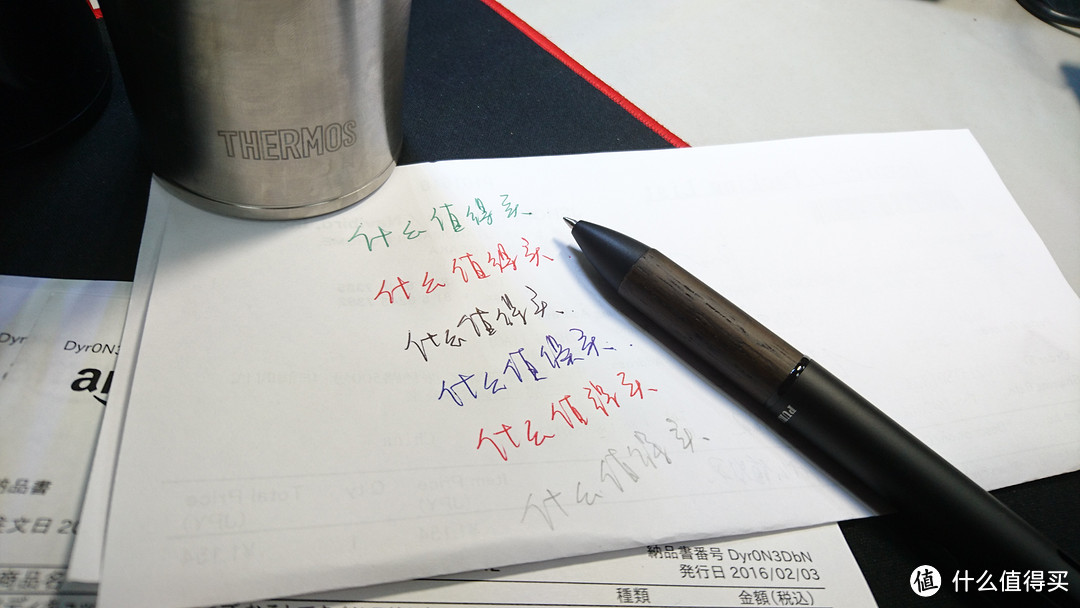 THERMOS
什么值得买
什么值得买
什么值得买
什么值得买
什么值得买
什么值得买
PUR
Dyr0N3
納品書
注文日 20
商品名
納品書番号 Dyr0N3DbN
発行日 2016/02/03
種類 金額(税込)
值 什么值得买